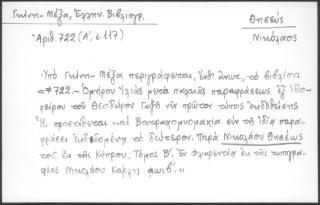 Γκίνη - Μέξα, Ἑλλην. Βιβλιογρ.
Θησεύς
Νικόλαος
Ἀριθ. 722 (Α', σ. 117)
Ὑπὸ Γκίνη - Μέξα περιγράφεται, ἔνθ' ἄνωτ., τὸ βιβλίον:
«*722.- Ὁμήρου Ἰλιὰς μετὰ παλαιᾶς παραφράσεως ἐξ ἰδιο-
χείρου τοῦ Θεοδώρου Γαζῆ νῦν πρῶτον τύποις ἐκδοθείσης
ᾗ προστίθεται καὶ Βατραχομυομαχία σὺν τῇ ἰδίᾳ παρα-
φράσει ἐκδιδομένη τὸ δεύτερον. Παρὰ Νικολάου Θησέως
τοῦ ἐκ τῆς Κύπρου. Τόμος Β'. Ἐν Φλωρεντίᾳ ἐκ τῆς τυπογρα-
φίας Νικολάου Κάρλη αωιβ'.»